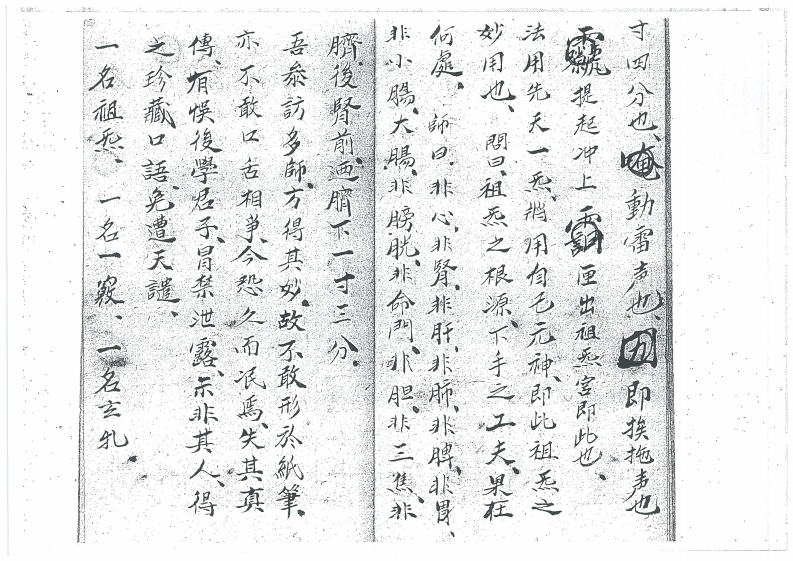 寸四分也、唵動雷声也、即挨拖声也
提起冲上匣出祖炁宮即此也、
法用先天一炁、將用自己元神、即此祖炁之
妙用也、問曰、祖炁之根源、下手之工夫、果在
何處、師曰、非心、非腎、非肝、非肺、非脾、非胃、
非小腸、大腸、非膀胱、非命門、非胆、非三焦、非
臍、後腎前、臍下一寸三分。
吾叅訪多師、方得其妙、故不敢形於紙筆、
亦不敢口舌相爭、今恐久而泯焉、失其真
傳、有悮後學君子、冒禁泄露、示非其人、得
之珍藏口語、免遭天譴、
一名祖炁、一名一竅、一名玄牝